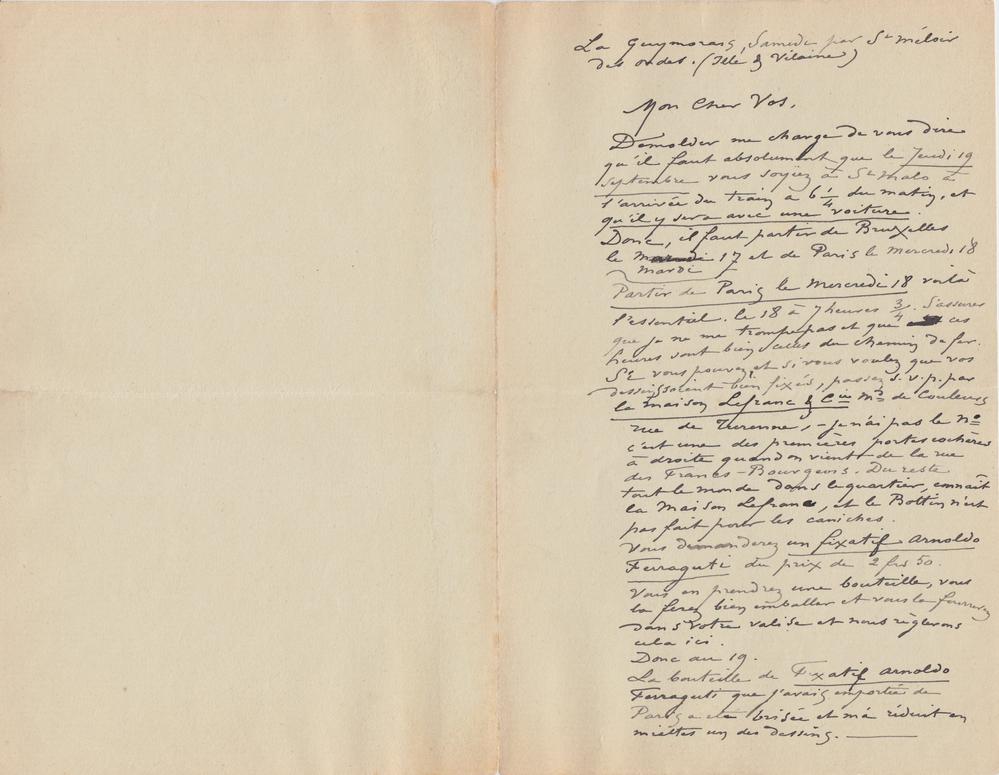 La Guymorais, Samedi par St Méloir
des ondes. (Ille & Vilaine)
Mon Cher Vos,
Demolder me charge de vous dire
qu'il faut absolument que le Jeudi 19
Septembre vous soyiez à St Malo à
l'arrivée du train à 6 1/4 du matin, et
qu'il y sera avec une voiture.
Donc, il faut partir de Bruxelles
le 17 et de Paris le mercredi 18
mardi
Partir de Paris le Mercredi 18 voilà
l'essentiel. le 18 à 7 heures 3/4. S'assurer
que je ne me trompe pas et que ces
heures sont bien celles du chemin de fer.
Si vous pouvez et si vous voulez que vos
dessins soient bien fixés, passez s.v.p. par
la maison Lefranc & Cie Mds de Couleurs
rue de Turenne, - je n'ai pas le no
c'est une des premières portes cochères
à droite quand on vient de la rue
des Francs-Bourgeois. Du reste
tout le monde dans le quartier, connaît
la Maison Lefranc, et le Bottin n'est
pas fait pour les caniches.
Vous demanderez un fixatif Arnoldo
Ferraguti du prix de 2 frs 50.
Vous en prendrez une bouteille, vous
la ferez bien emballer et vous la fourrerez
dans votre valise et nous règlerons
cela ici.
Donc au 19.
La bouteille de Fixatif Arnoldo
Ferraguti que j'avais emportée de
Paris a été brisée et m'a réduit en
miettes un des dessins.